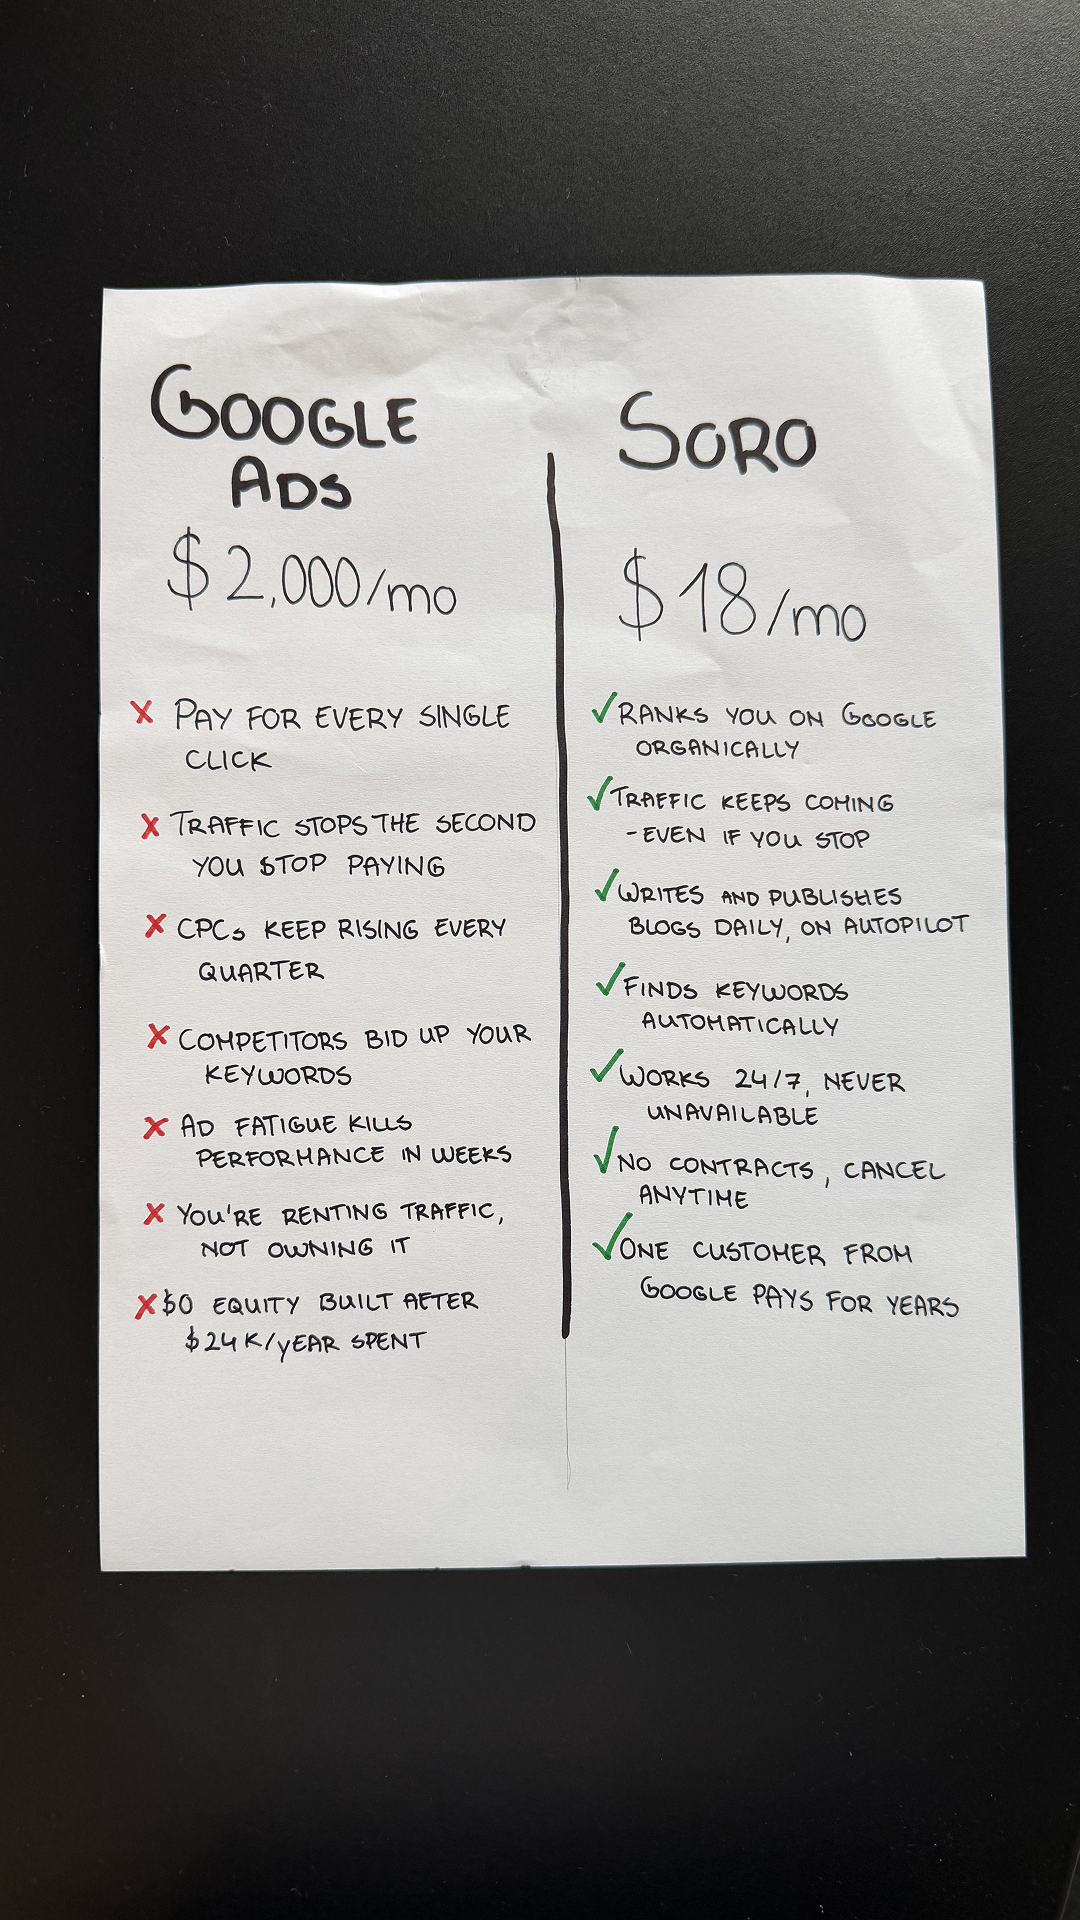 GOOGLE
ADS
$2,000/mo
X PAY FOR EVERY SINGLE
CLICK
X TRAFFIC STOPS THE SECOND
YOU STOP PAYING
X CPCs KEEP RISING EVERY
QUARTER
X COMPETITORS BID UP YOUR
KEYWORDS
X AD FATIGUE KILLS
PERFORMANCE IN WEEKS
X YOU'RE RENTING TRAFFIC,
NOT OWNING IT
X $0 EQUITY BUILT AFTER
$24K/YEAR SPENT
SORO
$18/mo
✓ RANKS YOU ON GOOGLE
ORGANICALLY
✓ TRAFFIC KEEPS COMING
-EVEN IF YOU STOP
✓ WRITES AND PUBLISHES
BLOGS DAILY, ON AUTOPILOT
✓ FINDS KEYWORDS
AUTOMATICALLY
✓ WORKS 24/7, NEVER
UNAVAILABLE
✓ NO CONTRACTS, CANCEL
ANYTIME
✓ ONE CUSTOMER FROM
GOOGLE PAYS FOR YEARS